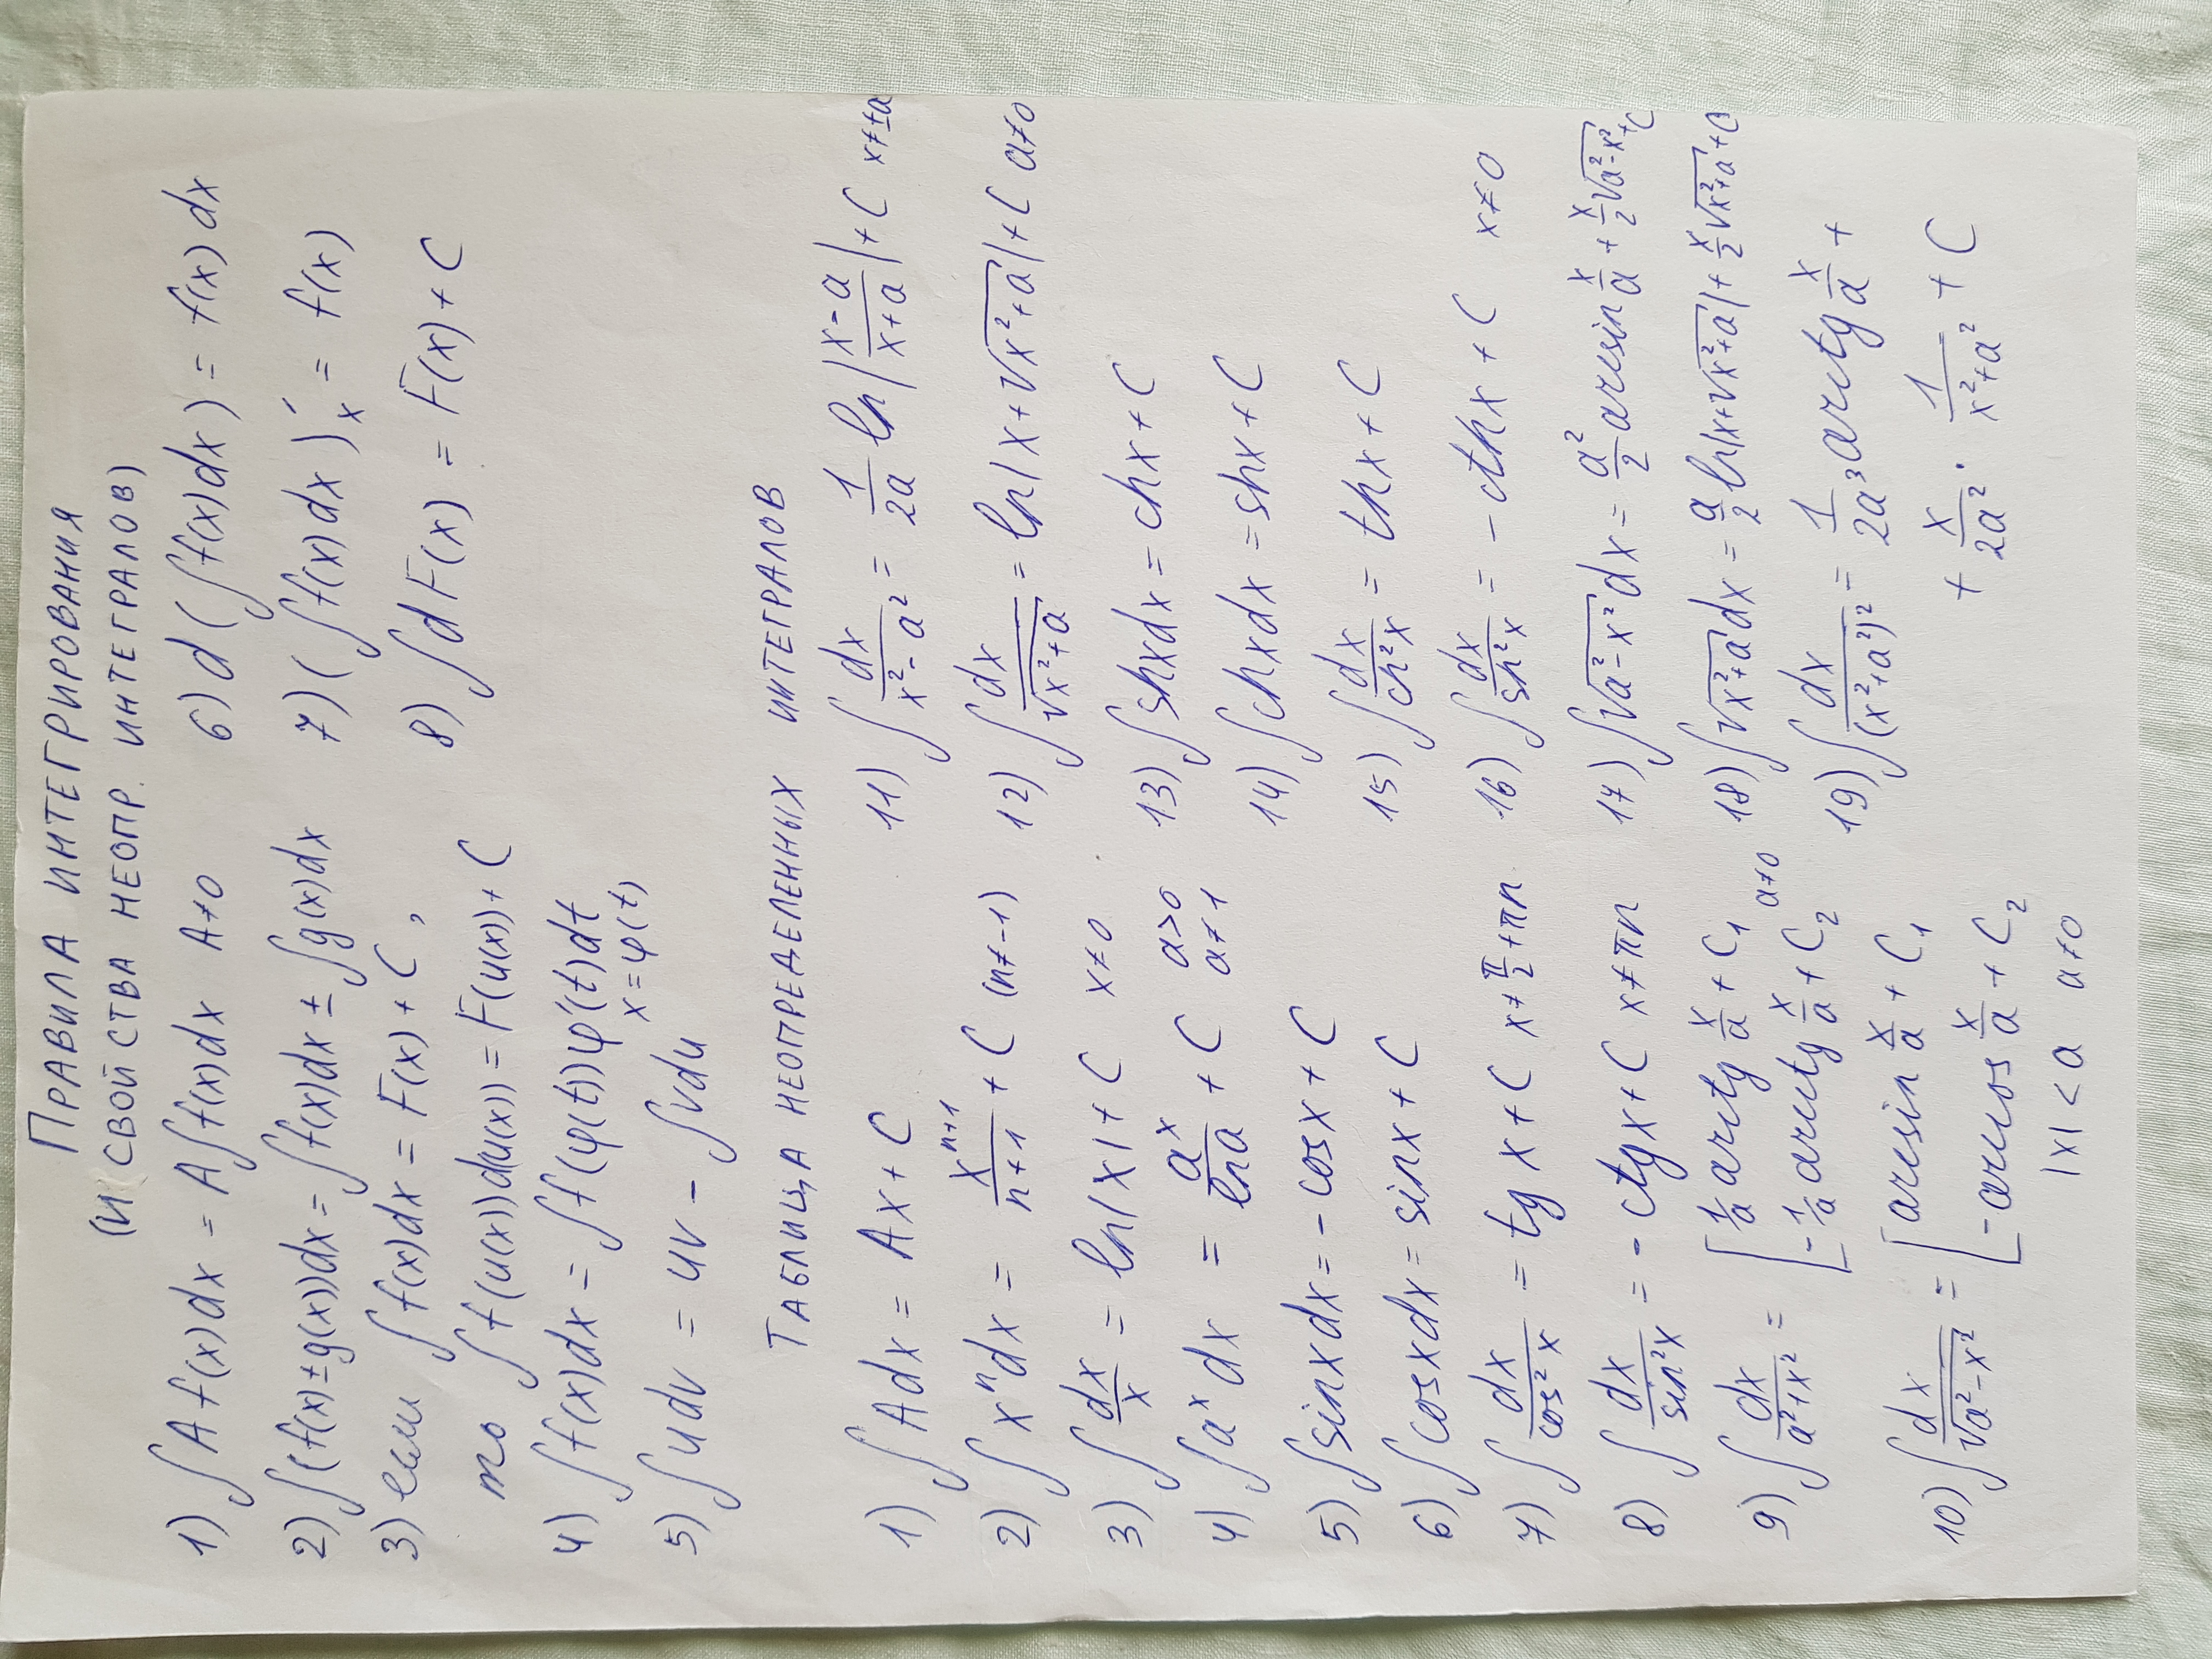 ПРАВИЛА ИНТЕГРИРОВАНИЯ
(И СВОЙСТВА НЕОПР. ИНТЕГРАЛОВ)
1) ∫Af(x)dx = A∫f(x)dx A≠0
2) ∫(f(x)±g(x))dx = ∫f(x)dx ± ∫g(x)dx
3) если ∫f(x)dx = F(x)+C,
то ∫f(u(x))du(x) = F(u(x))+C
4) ∫f(x)dx = ∫f(φ(t))φ'(t)dt
x=φ(t)
5) ∫udv = uv - ∫vdu
6) d(∫f(x)dx) = f(x)dx
7) (∫f(x)dx)'ₓ = f(x)
8) ∫dF(x) = F(x)+C
ТАБЛИЦА НЕОПРЕДЕЛЕННЫХ ИНТЕГРАЛОВ
1) ∫Adx = Ax+C
2) ∫xⁿdx = xⁿ⁺¹/(n+1) + C (n≠-1)
3) ∫dx/x = ln|x|+C x≠0
4) ∫aˣdx = aˣ/lna + C a>0 a≠1
5) ∫sinxdx = -cosx+C
6) ∫cosxdx = sinx+C
7) ∫dx/cos²x = tgx+C x≠π/2+πn
8) ∫dx/sin²x = -ctgx+C x≠πn
9) ∫dx/(a²+x²) = [1/a arctg x/a + C₁
-1/a arcctg x/a + C₂ a≠0
10) ∫dx/√(a²-x²) = [arcsin x/a + C₁
-arccos x/a + C₂
|x|<a a≠0
11) ∫dx/(x²-a²) = 1/2a ln|(x-a)/(x+a)|+C x≠±a
12) ∫dx/√(x²+a) = ln|x+√(x²+a)|+C a≠0
13) ∫shxdx = chx+C
14) ∫chxdx = shx+C
15) ∫dx/ch²x = thx+C
16) ∫dx/sh²x = -cthx+C x≠0
17) ∫√(a²-x²)dx = a²/2 arcsin x/a + x/2 √(a²-x²) +C
18) ∫√(x²+a)dx = a/2 ln|x+√(x²+a)| + x/2 √(x²+a) +C
19) ∫dx/(x²+a²)² = 1/2a³ arctg x/a +
+ x/2a² · 1/(x²+a²) + C